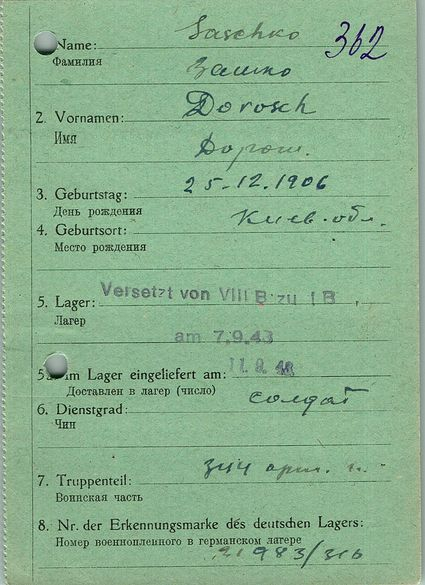 Name: Saschko 362
Фамилия Зашко
2. Vornamen: Dorosch
Имя Дорош.
3. Geburtstag: 25-12.1906
День рождения
4. Geburtsort: Киев. обл.
Место рождения
5. Lager: Versetzt von VIII B zu I B
Лагер am 7.9.43
5a Im Lager eingeliefert am: 11.9.43
Доставлен в лагер (число)
6. Dienstgrad: солдат
Чин
7. Truppenteil: 344 арт. п.
Воинская часть
8. Nr. der Erkennungsmarke des deutschen Lagers:
Номер военнопленного в германском лагере
983/316